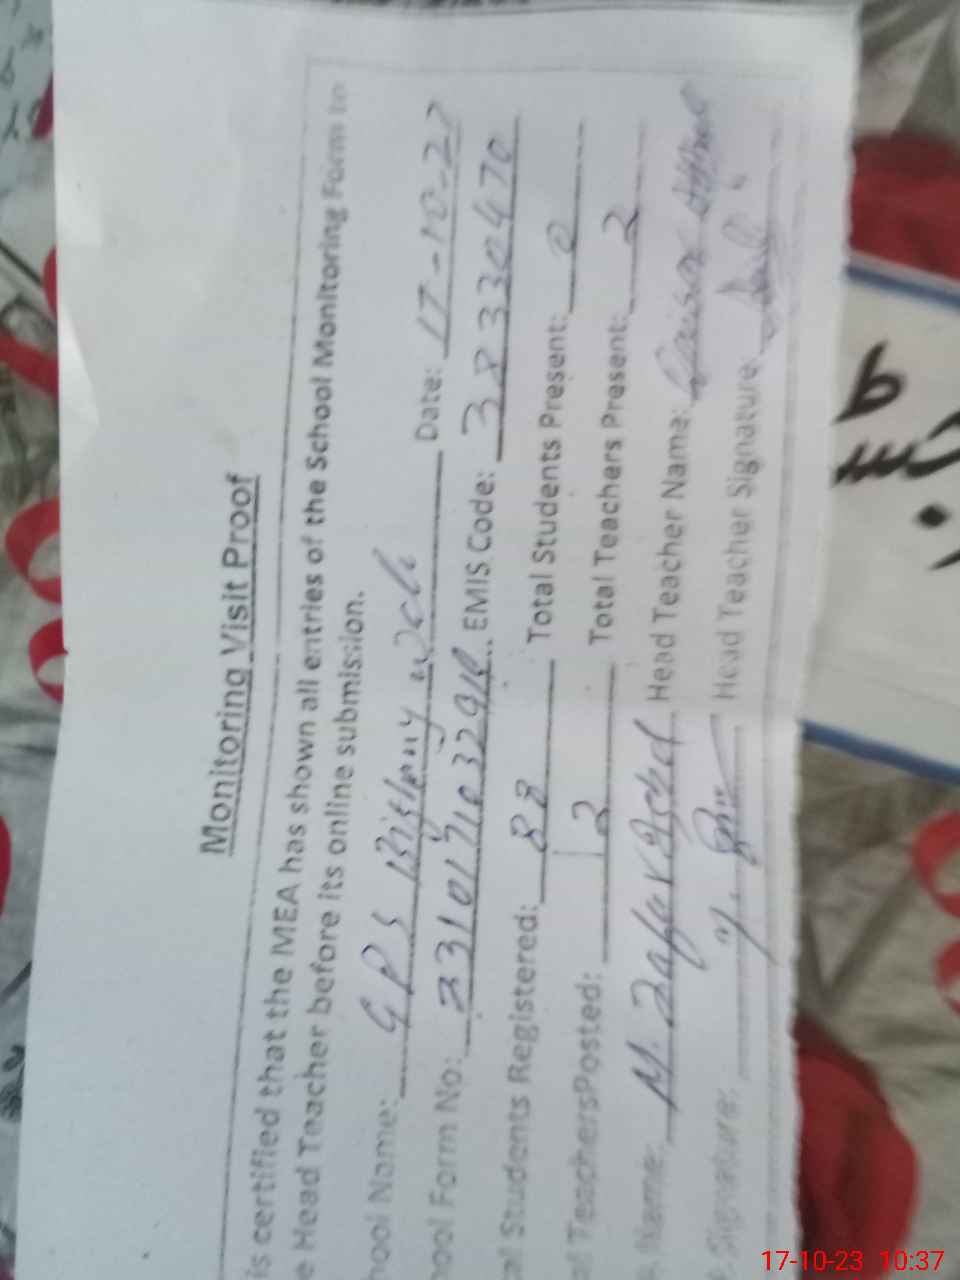 Monitoring Visit Proof
is certified that the MEA has shown all entries of the School Monitoring Form to
e Head Teacher before its online submission.
hool Name: GPS Date: 17-10-23
hool Form No: EMIS Code: 38330470
al Students Registered: 88 Total Students Present: 0
l TeachersPosted: 2 Total Teachers Present: 2
Name: M. Zafar Iqbal Head Teacher Name: Qaisar
Signature: Head Teacher Signature:
17-10-23 10:37